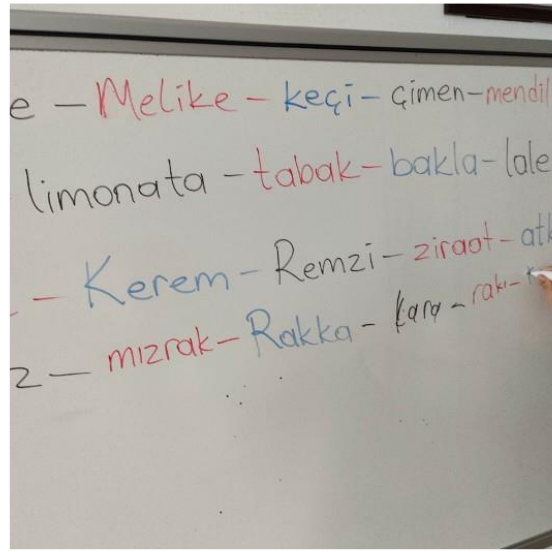 e - Melike - keçi - çimen - mendil
limonata - tabak - bakla - lale
- Kerem - Remzi - ziraat - atk
z - mızrak - Rakka - kara - rakı -